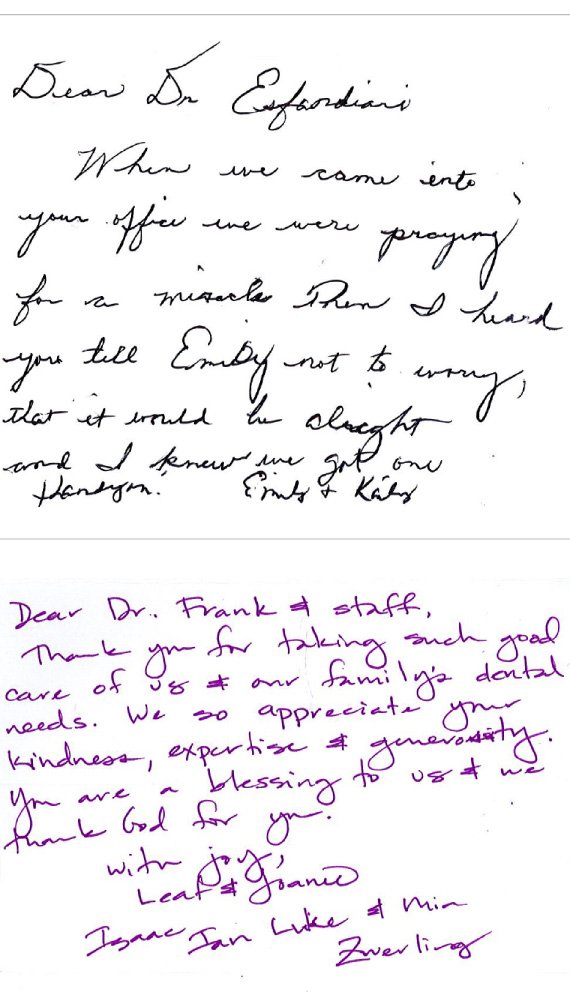 Dear Dr Esfaordiari
When we came into
your office we were praying
for a miracle Then I heard
you tell Emily not to worry,
that it would be alright
and I knew we got one
Emily & Kathy
Dear Dr. Frank & staff,
Thank you for taking such good
care of us & our family's dental
needs. We so appreciate your
kindness, expertise & generosity.
You are a blessing to us & we
thank God for you.
with joy,
Leaf & Joanie
Isaac Ian Luke & Mia
Zwerling